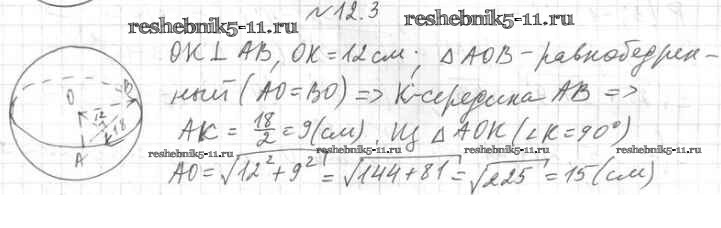 №12.3
reshebnik5-11.ru reshebnik5-11.ru
OK ⊥ AB, OK = 12 см; △AOB - равнобедрен-
ный (AO = BO) => K-середина AB =>
AK = 18/2 = 9 (см). Из △AOK (∠K = 90°)
reshebnik5-11.ru reshebnik5-11.ru reshebnik5-11.ru
AO = √12² + 9² = √144 + 81 = √225 = 15 (см)
O
B
12
K 18
A